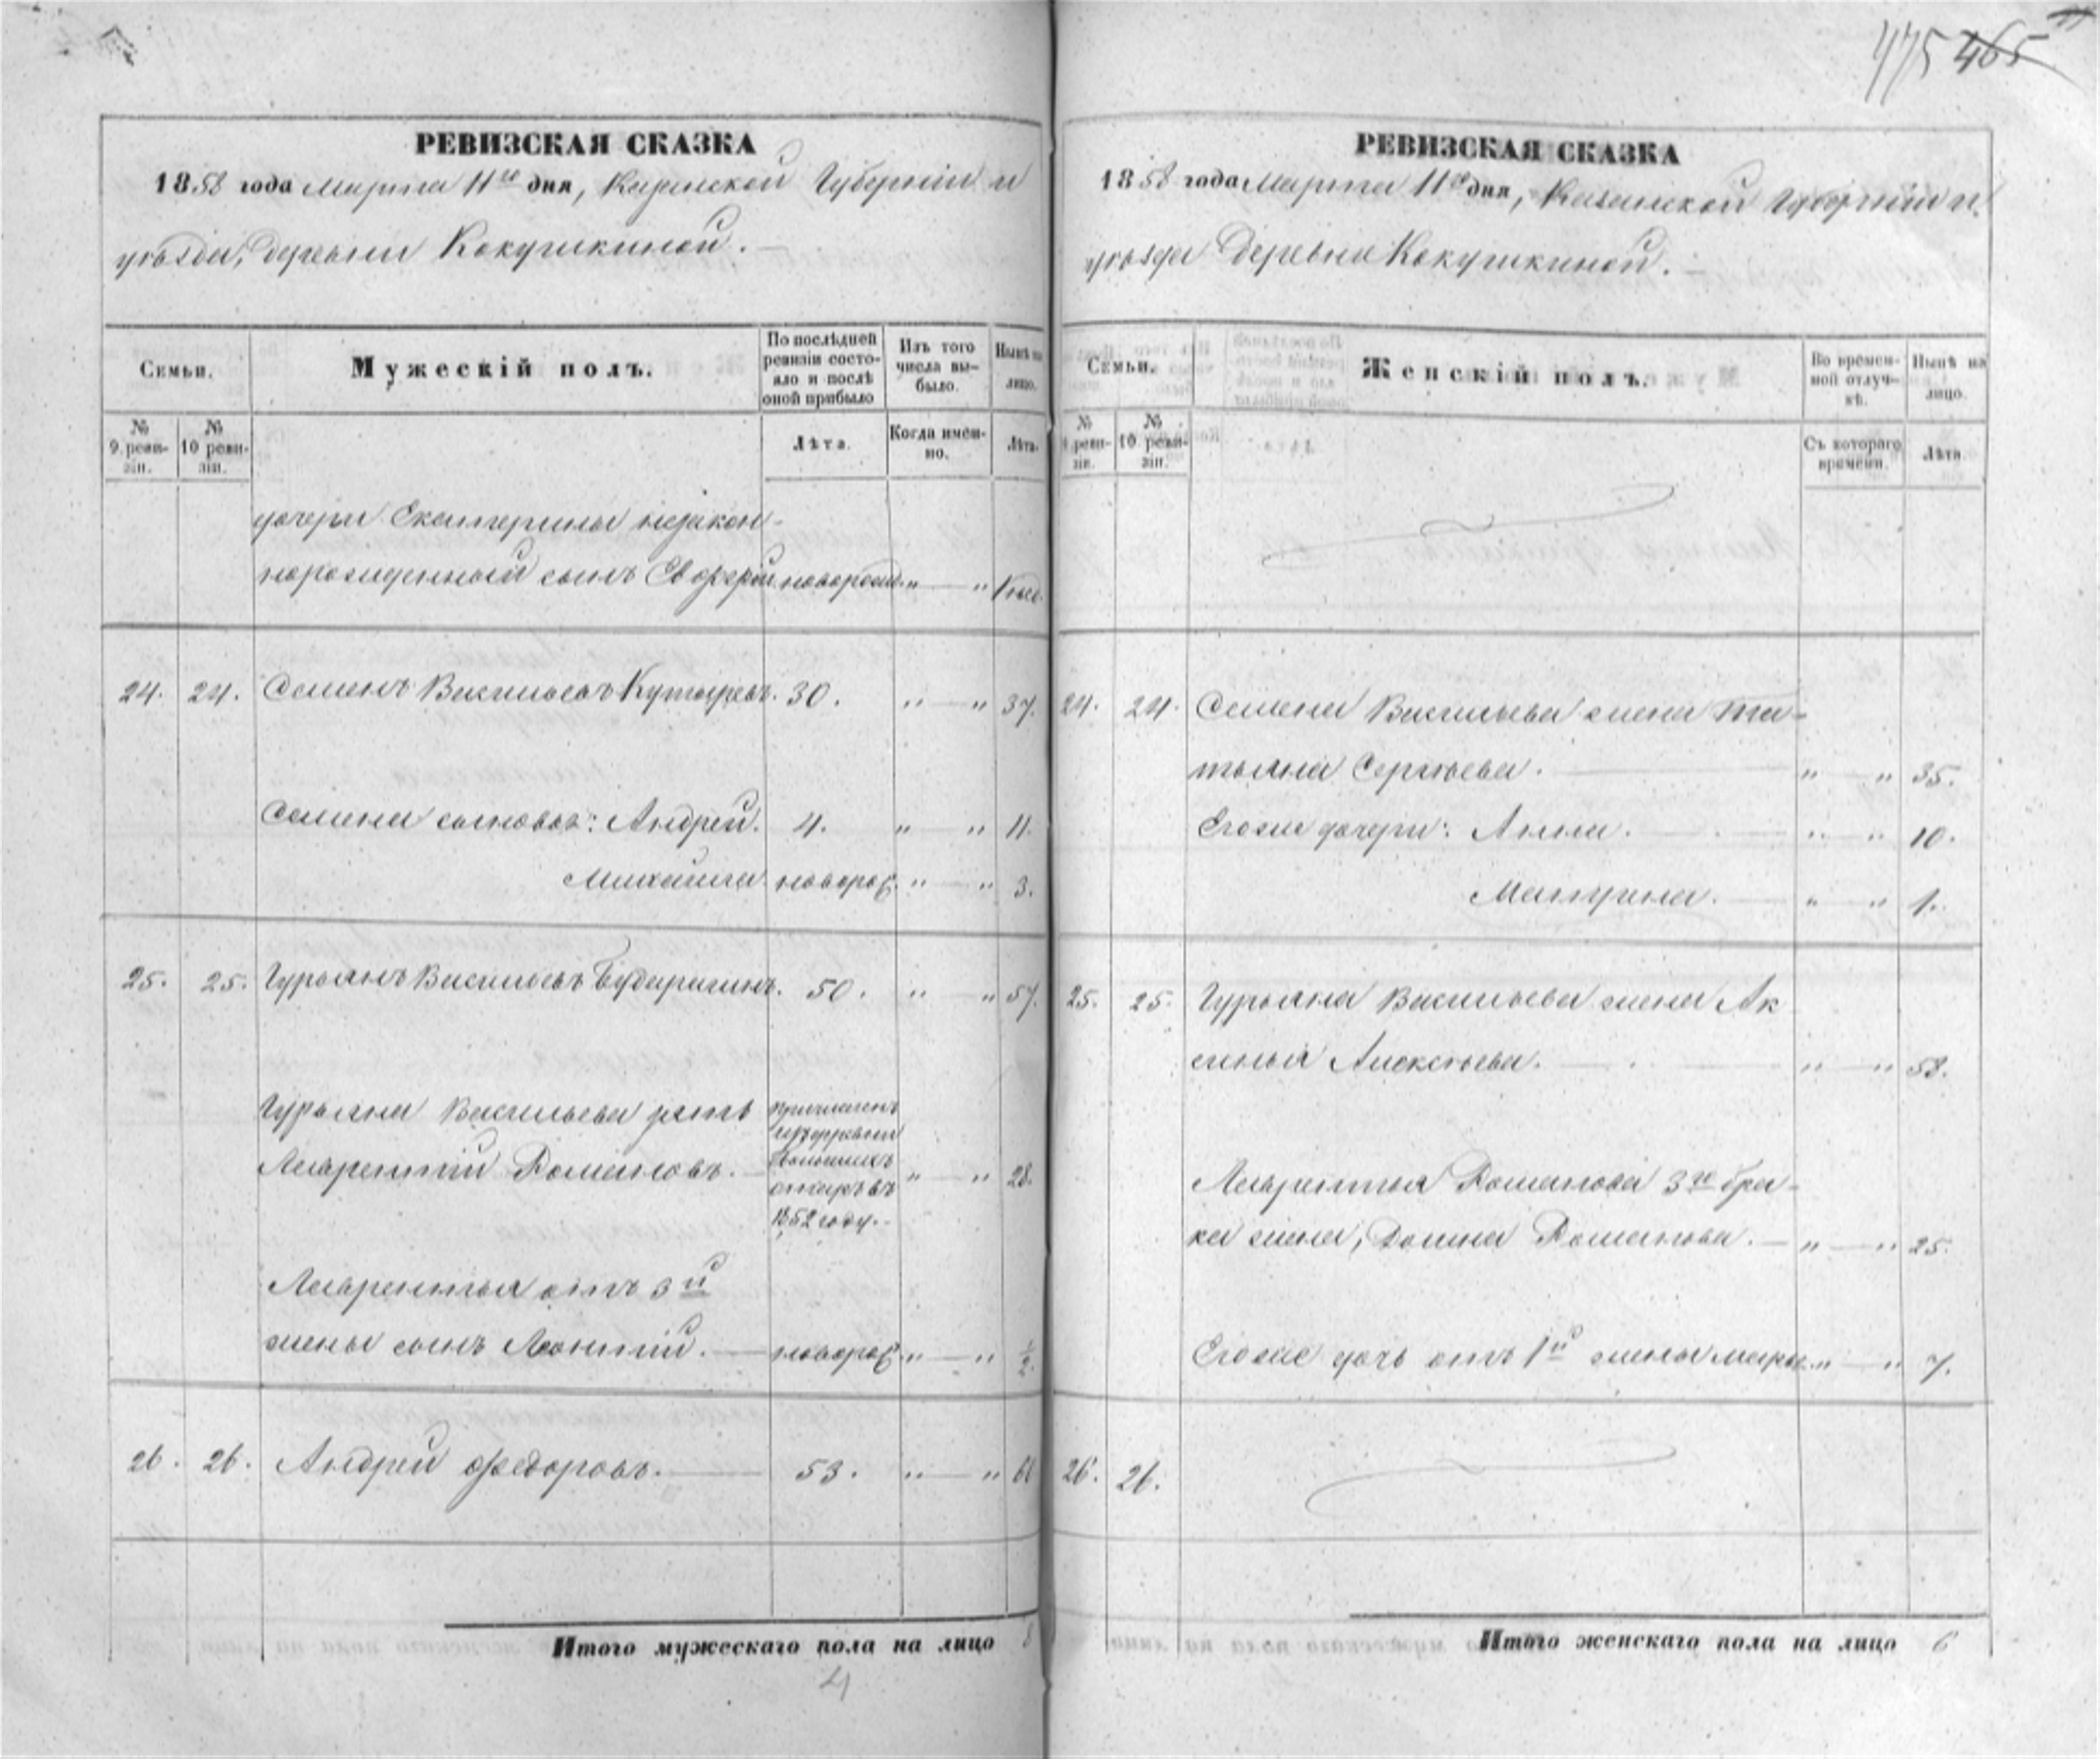 475 465
РЕВИЗСКАЯ СКАЗКА
1858 года Марта 11го дня, Казанской Губерніи и
уѣзда, деревни Кокушкиной.
Семьи.
Мужескій полъ.
По послѣдней ревизіи состояло и послѣ оной прибыло
Изъ того числа выбыло.
Нынѣ на лицо.
№ 9 ревизіи.
№ 10 ревизіи.
Лѣта.
Когда именно.
Лѣта.
дочери Екатерины незакон-
норожденный сынъ новорож. " — "
24. 24. Семенъ Васильевъ Кутыревъ. 30. " — " 37.
Семена сыновья: Андрей. 4. " — " 11.
Михаила новорож. " — " 3.
25. 25. Гурьянъ Васильевъ Бударагинъ. 50. " — " 57.
Гурьяна Васильева зять
Лаврентій Романовъ. — " — " 28.
причисленъ
изъ деревни
1852 году.
Лаврентья отъ 3й
жены сынъ Леонтій. — новорож. " — " 1/2.
26. 26. Андрей Федоровъ. — 53. " — " 60
Итого мужескаго пола на лицо 8
4
РЕВИЗСКАЯ СКАЗКА
1858 года Марта 11го дня, Казанской Губерніи и
уѣзда Деревни Кокушкиной.
Семьи.
Женскій полъ.
Во временной отлучкѣ.
Нынѣ на лицо.
№ 9 ревизіи.
№ 10 ревизіи.
Съ котораго времени.
Лѣта.
24. 24. Семена Васильева жена Та-
тьяна Сергѣева. " — " 35.
Егоже дочери: Анна. " — " 10.
Матрена. " — " 1.
25. 25. Гурьяна Васильева жена Ак
синья Алексѣева. " — " 58.
Лаврентья Романова 3го бра-
ка жена, Домна Романова. — " — " 25.
Егоже дочь отъ 1й жены Марья " — " 7.
26. 26.
Итого женскаго пола на лицо 6